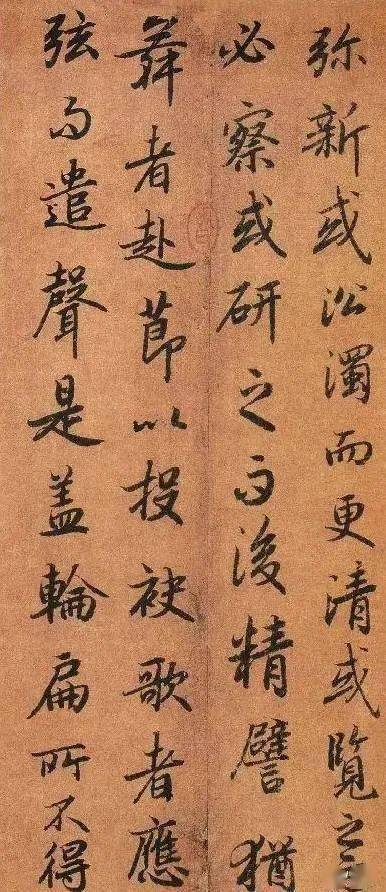 弥新或沿濁而更清或覽之
必察或研之而後精譬猶
舞者赴節以投袂歌者應
弦而遣聲是盖輪扁所不得